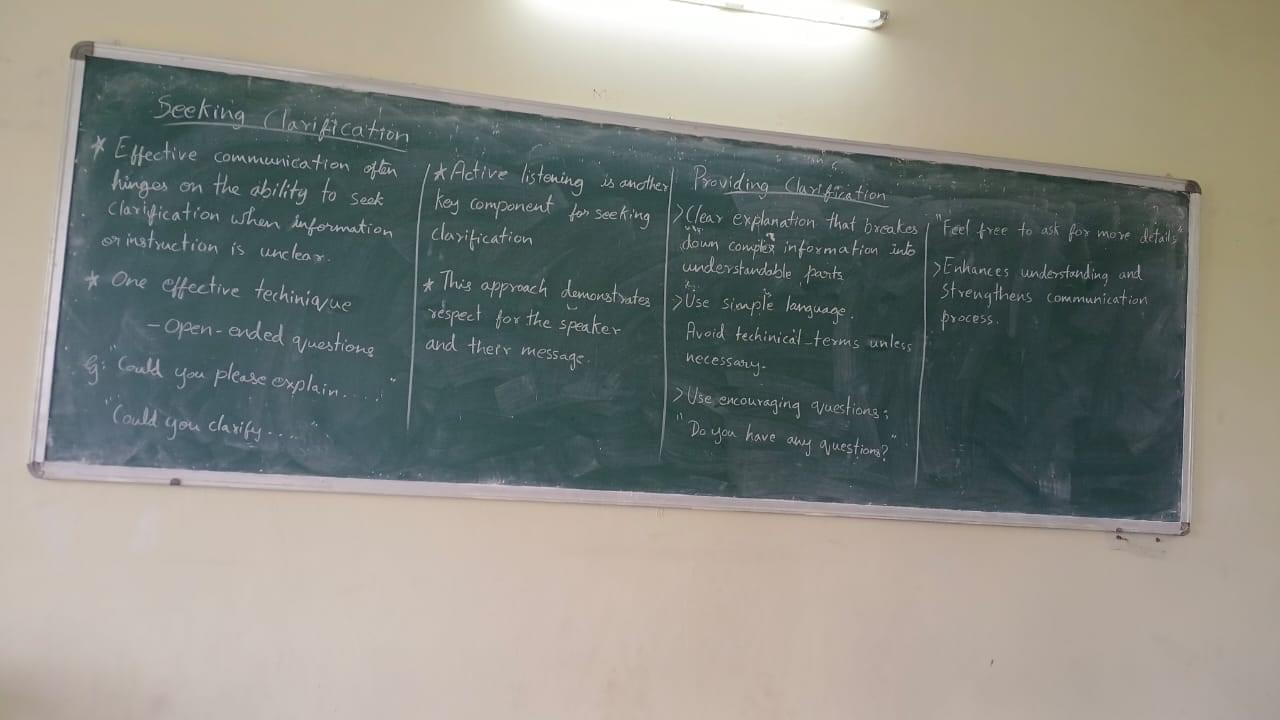 Seeking Clarification
* Effective communication often
hinges on the ability to seek
clarification when information
or instruction is unclear.
* One effective techinique
- Open-ended questions
Eg: "Could you please explain....."
"Could you clarify...."
* Active listening is another
key component for seeking
clarification
* This approach demonstrates
respect for the speaker
and their message.
Providing Clarification
> Clear explanation that breakes
down complex information into
understandable parts
> Use simple language.
Avoid techinical terms unless
necessary.
> Use encouraging questions;
"Do you have any questions?"
"Feel free to ask for more details"
> Enhances understanding and
strengthens communication
process.